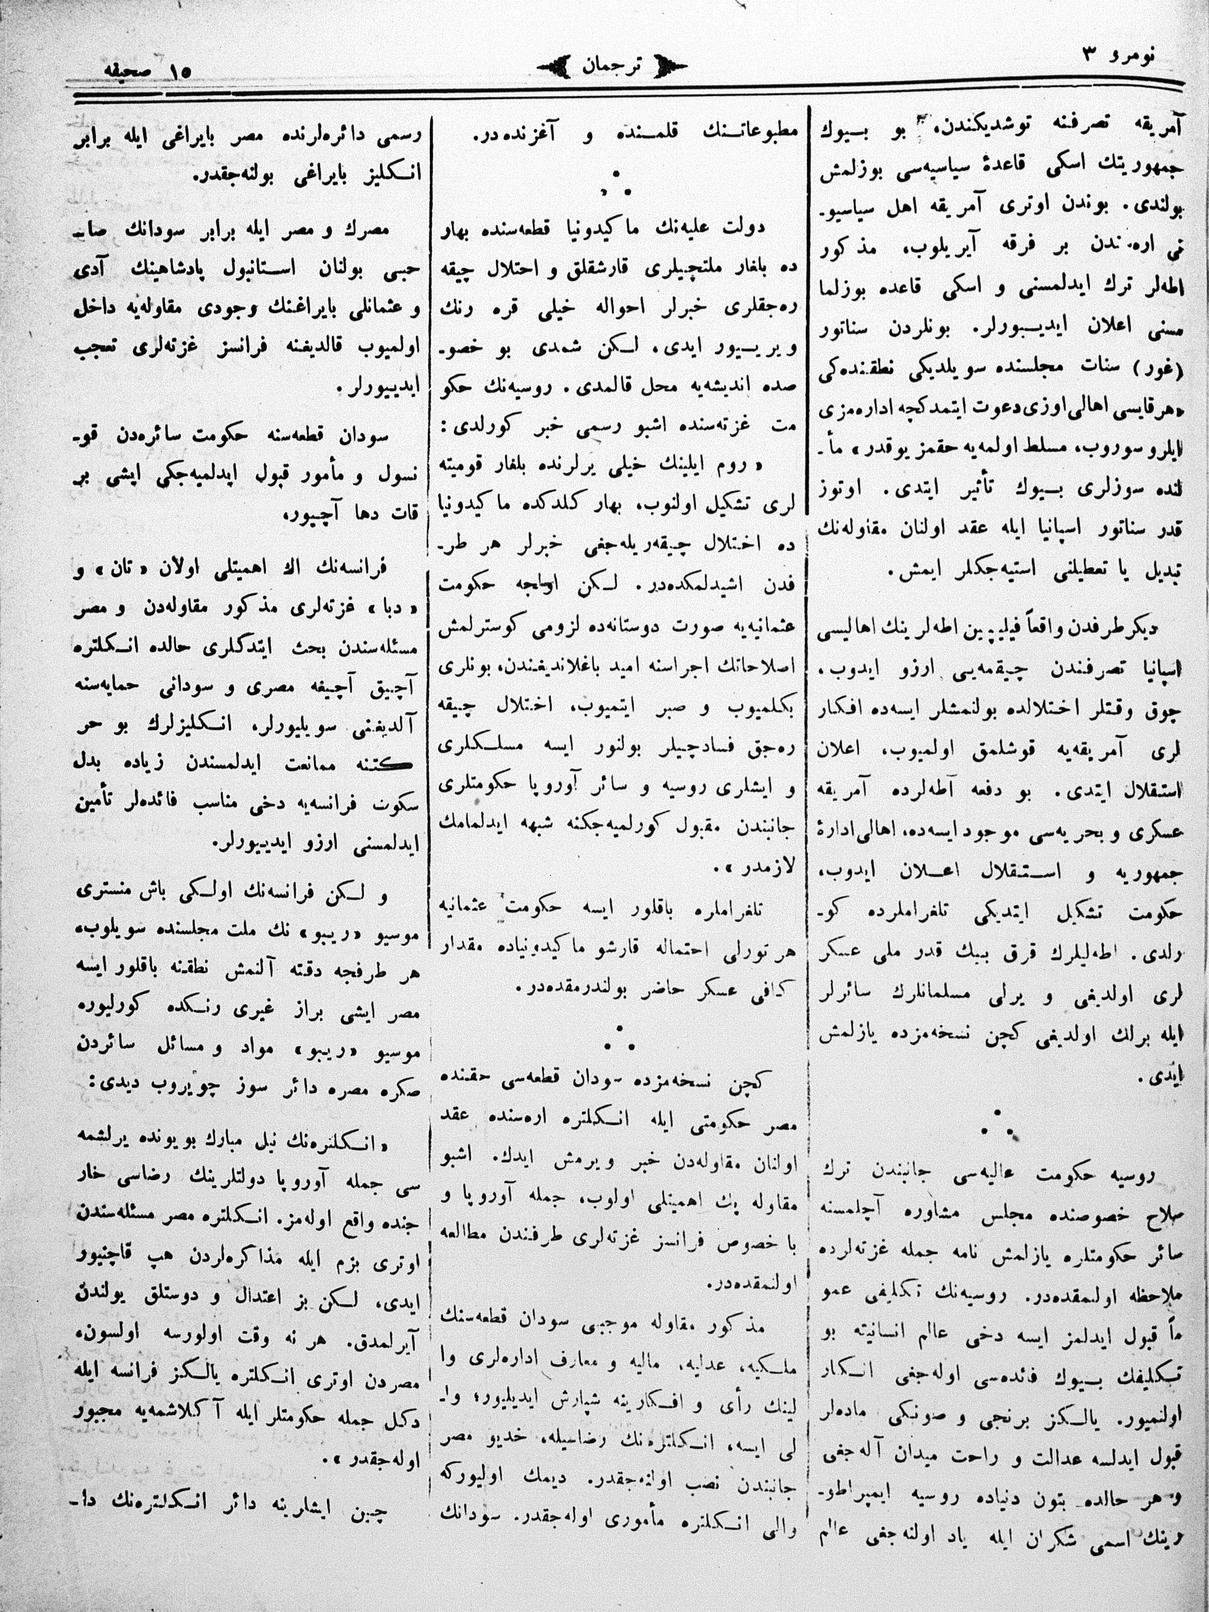 نومرو ٣
ترجمان
١٥ صحيفه
آمريقه تصرفنه توشديكندن، بو بـيوك
جمهوريتك اسكى قاعدۀ سياسيه‌سى بوزلمش
بولندى. بوندن اوترى آمريقه اهل سياسيو-
نى اره‌ندن بر فرقه آيريلوب، مذكور
اطه‌لر ترك ايدلمسنى و اسكى قاعده بوزلما
مسنى اعلان ايديـيورلر. بونلردن سناتور
(غور) سنات مجلسنده سويلديكى نطقنده‌كى
«هرقايسى اهالى اوزى دعوت ايتمدكچه اداره‌مزى
ايلرو سوروب، مسلط اولمه‌يه حقمز يوقدر» مأ-
لنده سوزلرى بـيوك تأثير ايتدى. اوتوز
قدر سناتور اسپانيا ايله عقد اولنان مقاوله‌نك
تبديل يا تعطيلنى استيه‌جكلر ايمش.
ديكر طرفدن واقعاً فيليپين اطه‌لرينك اهاليسى
اسپانيا تصرفندن چيقمه‌يى ارزو ايدوب.
چوق وقتلر اختلالده بولنمشلر ايسه‌ده افكار
لرى آمريقه‌يه قوشلمق اولميوب، اعلان
استقلال ايتدى. بو دفعه آطه‌لرده آمريقه
عسكرى و بحريه‌سى موجود ايسه‌ده، اهالى ادارۀ
جمهوريه و استقلال اعلان ايدوب،
حكومت تشكيل ايتديكى تلغراملرده كو-
رلدى. اطه‌ليلرك قرق بيك قدر ملى عسكر
لرى اولديغى و يرلى مسلمانلرك سائرلر
ايله برلك اولديغى كچن نسخه‌مزده يازلمش
ايدى.
روسيه حكومت عاليه‌سى جانبندن ترك
صلاح خصوصنده مجلس مشاوره آچلمسنه
سائر حكومتلره يازلمش نامه جمله غزته‌لرده
ملاحظه اولنمقده‌در. روسيه‌نك تكليفى عمو
ماً قبول ايدلمز ايسه دخى عالم انسانيته بو
تكليفك بـيوك فائده‌سى اوله‌جغى انكار
اولنميور. يالكز برنجى و صونكى ماده‌لر
قبول ايدلسه عدالت و راحت ميدان آله‌جغى
و هر حالده بتون دنياده روسيه ايمپراطو-
رينك اسمى شكران ايله ياد اولنه‌جغى عالم
مطبوعاتـنك قلمـنده و آغزنده‌در.
دولت عليه‌نك ماكيدونيا قطعه‌سنده بهار
ده بلغار ملتچيلرى قارشقلق و احتلال چيقه
ره‌جقلرى خبرلر احواله خيلى قره رنك
ويريـيور ايدى. لكن شمدى بو خصو-
صده انديشه‌يه محل قالمدى. روسيه‌نك حكو
مت غزته‌سنده اشبو رسمى خبر كورلدى:
«روم ايلينك خيلى يرلرنده بلغار قوميته
لرى تشكيل اولنوب، بهار كلدكده ماكيدونيا
ده اختلال چيقه‌ريله‌جغى خبرلر هر طر-
فدن اشيدلمكده‌در. لكن اولجه حكومت
عثمانيه‌يه صورت دوستانه‌ده لزومى كوسترلمش
اصلاحاتك اجراسنه اميد باغلانديغندن، بونلرى
بكلميوب و صبر ايتميوب، اختلال چيقه
ره‌جق فسادچيلر بولنور ايسه مسلكلرى
و ايشلرى روسيه و سائر آوروپا حكومتلرى
جانبندن مقبول كورلميه‌جكنه شبهه ايدلمامك
لازمدر».
تلغراملره باقلور ايسه حكومت عثمانيه
هر تورلى احتماله قارشو ماكيدونياده مقدار
كافى عسكر حاضر بولندرمقده‌در.
كچن نسخه‌مزده سودان قطعه‌سى حقنده
مصر حكومتى ايله انكلتره اره‌سنده عقد
اولنان مقاوله‌دن خبر ويرمش ايدك. اشبو
مقاوله پك اهميتلى اولوب، جمله آوروپا و
با خصوص فرانسز غزته‌لرى طرفندن مطالعه
اولنمقده‌در.
مذكور مقاوله موجبى سودان قطعه‌سنك
ملكيه، عدليه، ماليه و معارف اداره‌لرى وا
لينك رأى و افكارينه شپارش ايديليور؛ وا-
لى ايسه، انكلتره‌نك رضاسيله، خديو مصر
جانبندن نصب اولنه‌جقدر. ديمك اوليوركه
والى انكلتره مأمورى اوله‌جقدر. سودانك
رسمى دائره‌لرنده مصر بايراغى ايله برابر
انكليز بايراغى بولنه‌جقدر.
مصرك و مصر ايله برابر سودانك صا-
حبى بولنان استانبول پادشاهينك آدى
و عثمانلى بايراغنك وجودى مقاوله‌يه داخل
اولميوب قالديغنه فرانسز غزته‌لرى تعجب
ايدييورلر.
سودان قطعه‌سنه حكومت سائره‌دن قو-
نسول و مأمور قبول ايدلميه‌جكى ايشى بر
قات دها آچيور.
فرانسه‌نك اك اهميتلى اولان «تان» و
«دبا» غزته‌لرى مذكور مقاوله‌دن و مصر
مسئله‌سندن بحث ايتدكلرى حالده انكلتره
آچيق آچيغه مصرى و سودانى حمايه‌سنه
آلديغنى سويليورلر، انكليزلرك بو حر
كتنه ممانعت ايدلمسندن زياده بدل
سكوت فرانسه‌يه دخى مناسب فائده‌لر تأمين
ايدلمسنى ارزو ايدييورلر.
و لكن فرانسه‌نك اولكى باش منسترى
موسيو «ريبو» نك ملت مجلسنده سويلوب،
هر طرفجه دقته آلنمش نطقنه باقلور ايسه
مصر ايشى براز غيرى رنكده كورليوره
موسيو «ريبو» مواد و مسائل سائردن
صكره مصره دائر سوز چويروب ديدى:
«انكلتره‌نك نيل مبارك بويونده يرلشمه
سى جمله آوروپا دولتلرينك رضاسى خار
جنده واقع اوله‌مز. انكلتره مصر مسئله‌سندن
اوترى بزم ايله مذاكره‌لردن هپ قاچنيور
ايدى، لكن بز اعتدال و دوستلق يولندن
آيرلمدق. هر نه وقت اولورسه اولسون،
مصردن اوترى انكلتره يالكز فرانسه ايله
دكل جمله حكومتلر ايله آكلاشمه‌يه مجبور
اوله‌جقدر».
چين ايشلرينه دائر انكلتره‌نك دا-